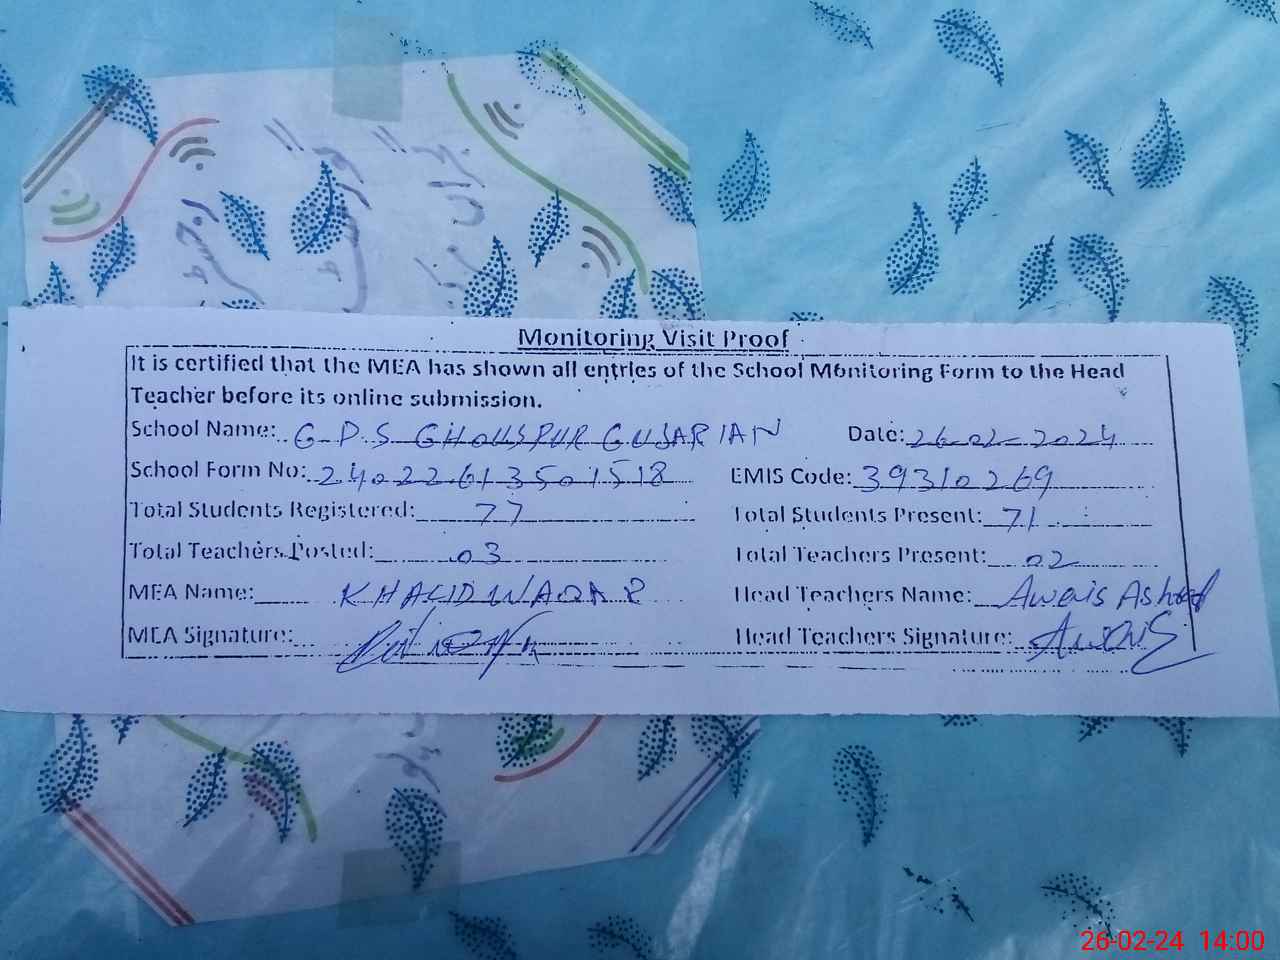 Monitoring Visit Proof
It is certified that the MEA has shown all entries of the School Monitoring Form to the Head
Teacher before its online submission.
School Name: G P S GHOUSPUR GUJARIAN Date: 26-02-2024
School Form No: 2402261350 1518 EMIS Code: 39310269
Total Students Registered: 77 Total Students Present: 71
Total Teachers Posted: 03 Total Teachers Present: 02
MEA Name: KHALID WAQAR Head Teachers Name: Awais Ashraf
MEA Signature: Head Teachers Signature: Awais
26-02-24 14:00